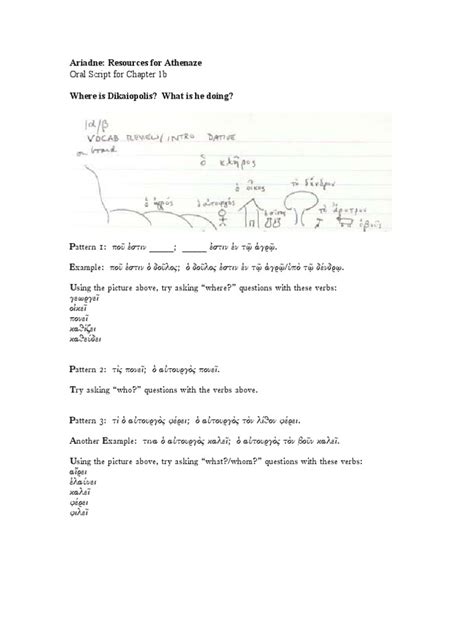 Ariadne: Resources for Athenaze
Oral Script for Chapter 1b
Where is Dikaiopolis? What is he doing?
1α/β
VOCAB REVIEW/INTRO DATIVE
on board
ὁ κλῆρος
ὁ ἀγρός ὁ αὐτουργός ὁ οἶκος τὸ δένδρον
τὸ ἄροτρον
Pattern 1: ποῦ ἐστιν _____; _____ ἐστιν ἐν τῷ ἀγρῷ.
Example: ποῦ ἐστιν ὁ δοῦλος; ὁ δοῦλος ἐστιν ἐν τῷ ἀγρῷ/ὑπὸ τῷ δένδρῳ.
Using the picture above, try asking “where?” questions with these verbs:
γεωργεῖ
οἰκεῖ
πονεῖ
καθίζει
καθεύδει
Pattern 2: τίς πονεῖ; ὁ αὐτουργὸς πονεῖ.
Try asking “who?” questions with the verbs above.
Pattern 3: τί ὁ αὐτουργὸς φέρει; ὁ αὐτουργὸς τὸν λίθον φέρει.
Another Example: τινα ὁ αὐτουργὸς καλεῖ; ὁ αὐτουργὸς τὸν βοῦν καλεῖ.
Using the picture above, try asking “what?/whom?” questions with these verbs:
αἴρει
ἐλαύνει
καλεῖ
φέρει
φιλεῖ